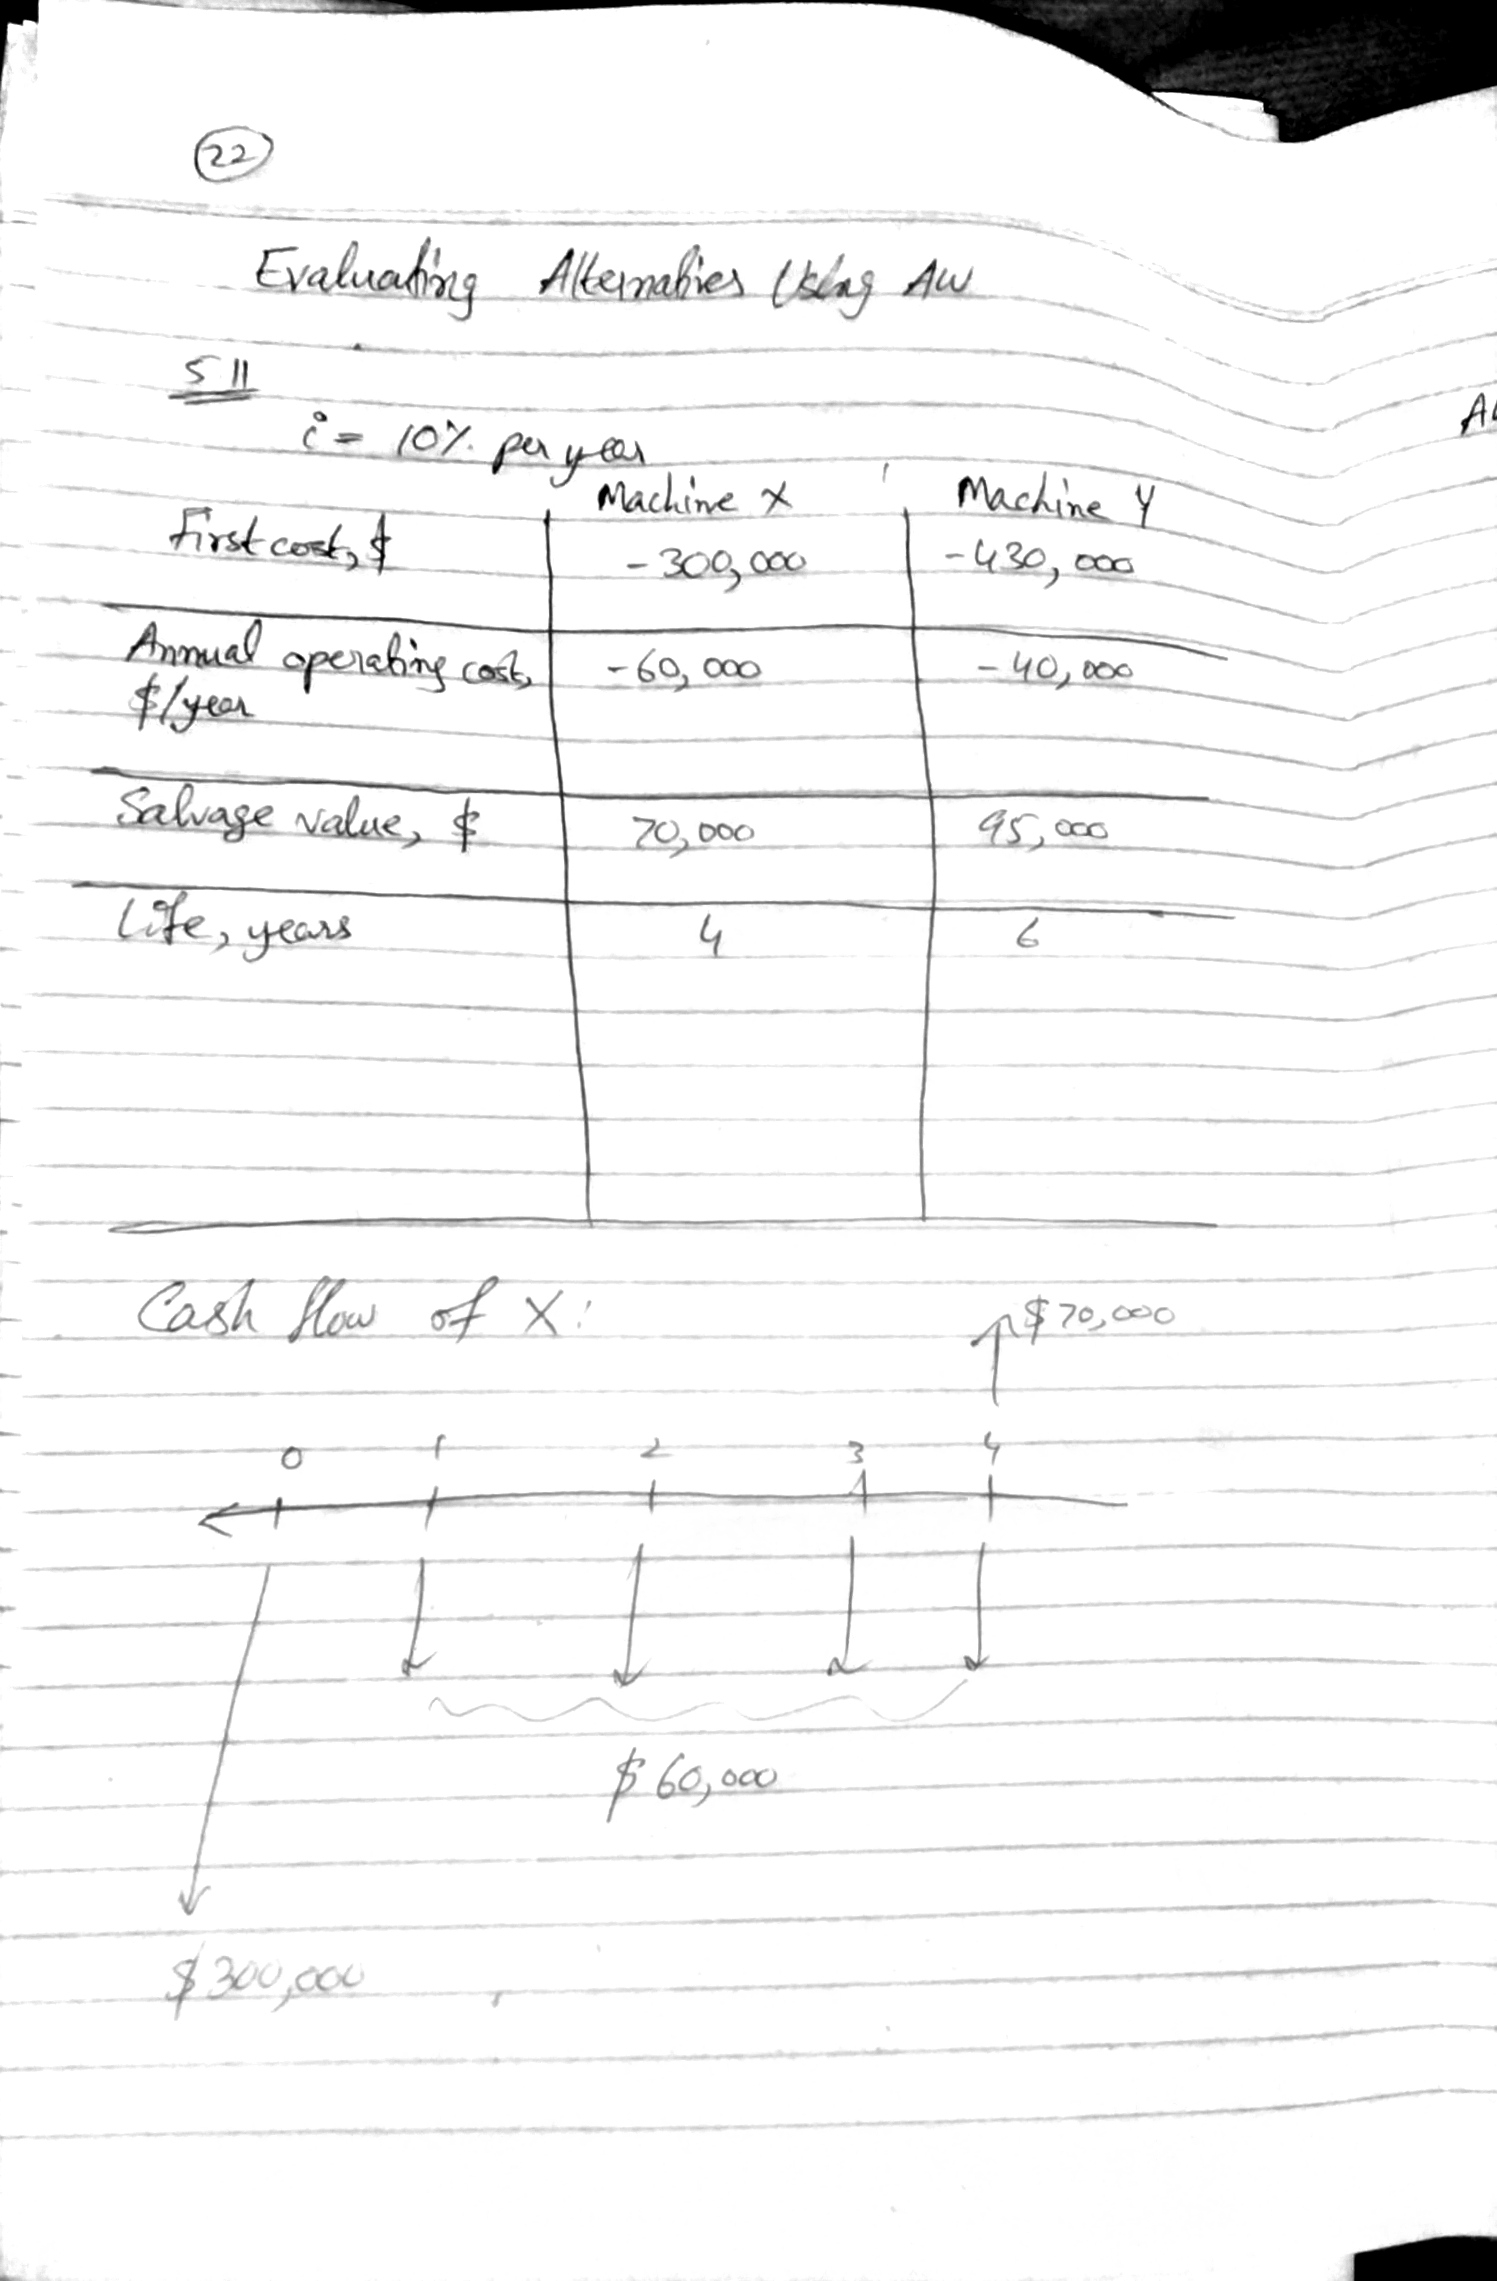 22
Evaluating Alternatives Using AW
5 11
i = 10% per year
Machine X Machine Y
First cost, $ -300,000 -430,000
Annual operating cost, -60,000 -40,000
$/year
Salvage value, $ 70,000 95,000
Life, years 4 6
Cash flow of X:
$70,000
0 1 2 3 4
$60,000
$300,000